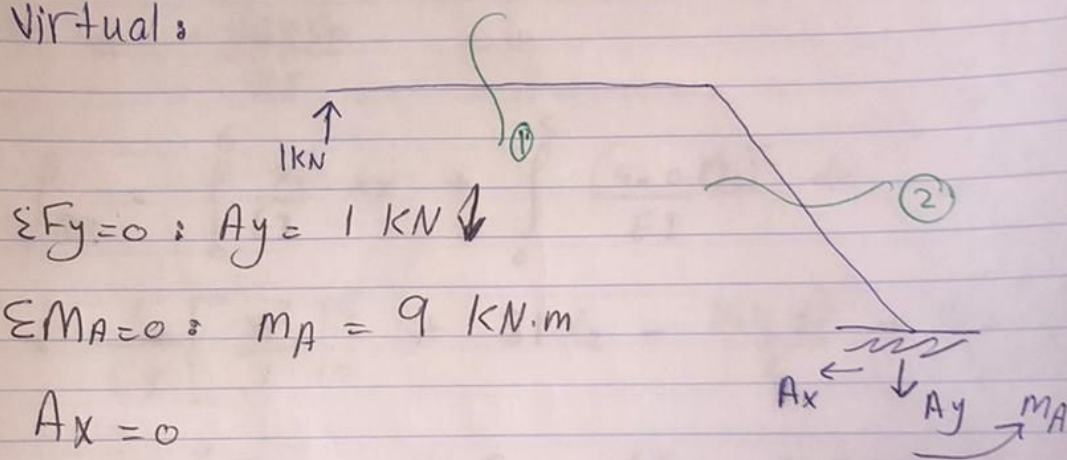 Virtual:
1KN
①
②
ΣFy=0 : Ay = 1 KN ↓
ΣMA=0 : mA = 9 KN.m
Ax
Ay
MA
Ax = 0